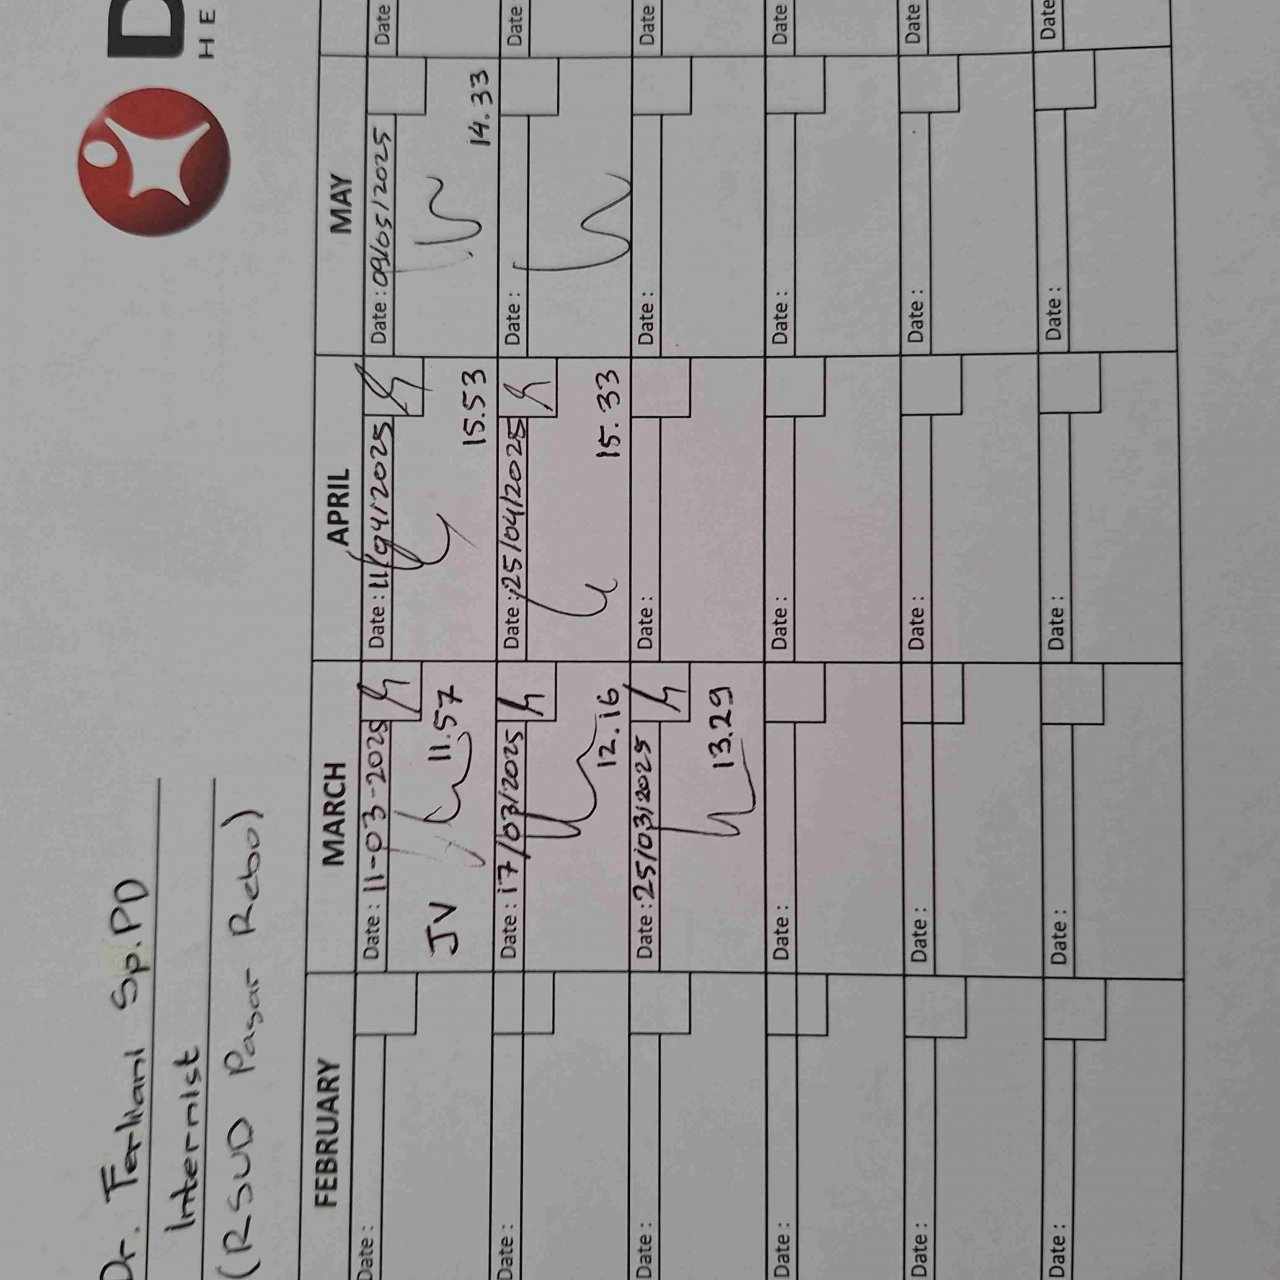 Dr. Ferliani Sp.PD
Internist
(RSUD Pasar Rebo)
D
HE
FEBRUARY MARCH APRIL MAY
Date : Date : 11-03-2025 Date : 11/04/2025 Date : 09/05/2025 Date
JV 11.57 15.53 14.33
Date : Date : 17/03/2025 Date : 25/04/2025 Date : Date
12.16 15.33
Date : Date : 25/03/2025 Date : Date : Date
13.29
Date : Date : Date : Date : Date
Date : Date : Date : Date : Date
Date : Date : Date : Date : Date